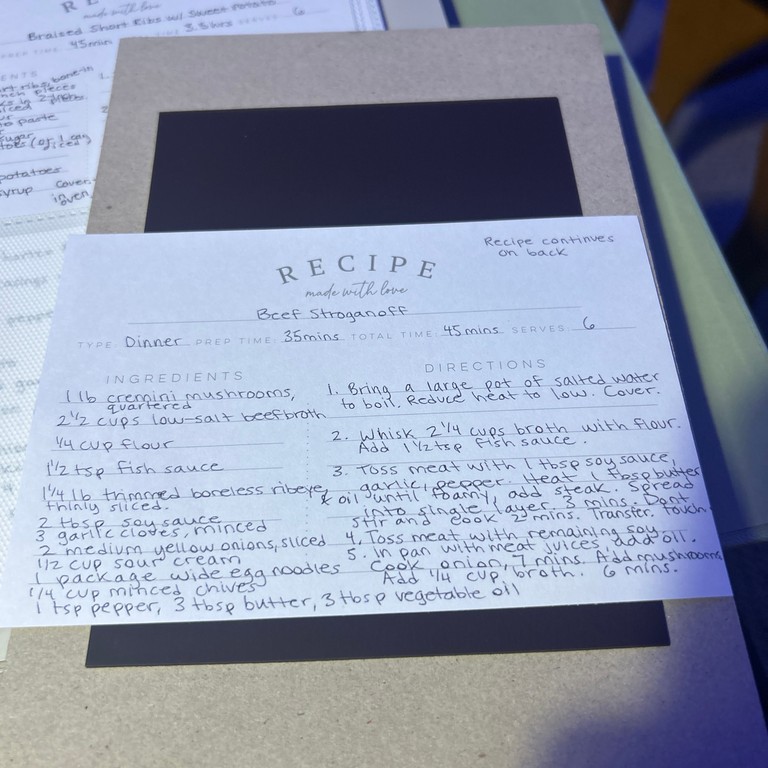 made with love
Braised Short Ribs w/ Sweet Potato
PREP TIME: 45min 3.5hrs SERVES: 6
ENTS
bone-in
pieces
paste
sugar
potatoes
syrup Cover.
RECIPE
made with love
Recipe continues
on back
Beef Stroganoff
TYPE: Dinner PREP TIME: 35mins TOTAL TIME: 45mins SERVES: 6
INGREDIENTS
1 lb cremini mushrooms,
quartered
2 1/2 cups low-salt beef broth
1/4 cup flour
1 1/2 tsp fish sauce
1 1/4 lb trimmed boneless ribeye,
thinly sliced.
2 tbsp soy sauce
3 garlic cloves, minced
2 medium yellow onions, sliced
1/2 cup sour cream
1 package wide egg noodles
1/4 cup minced chives
1 tsp pepper, 3 tbsp butter, 3 tbsp vegetable oil
DIRECTIONS
1. Bring a large pot of salted water
to boil. Reduce heat to low. Cover.
2. Whisk 2 1/4 cups broth with flour.
Add 1 1/2 tsp fish sauce.
3. Toss meat with 1 tbsp soy sauce,
garlic, pepper. Heat 1 tbsp butter
& oil until foamy, add steak. Spread
into single layer. 3 mins. Dont
stir and cook 2 mins. Transfer.
4. Toss meat with remaining soy.
5. In pan with meat juices add oil.
Cook onion, 7 mins. Add mushrooms
Add 1/4 cup broth. 6 mins.